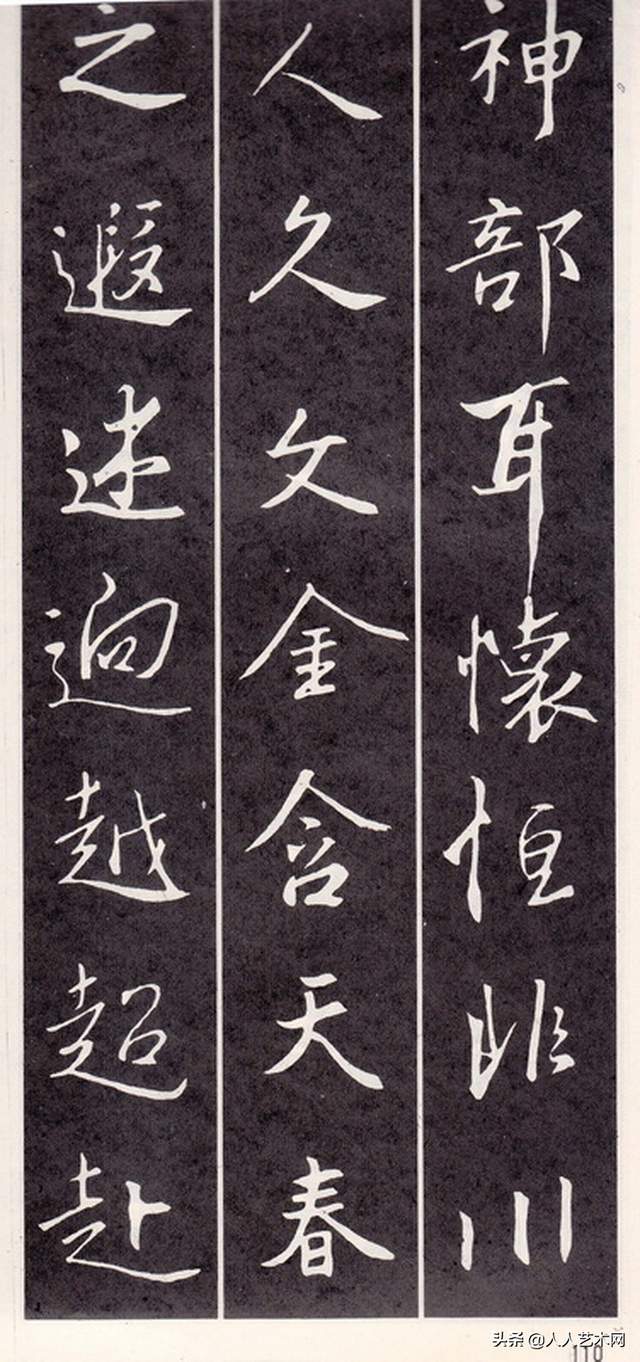 神部耳懷恒非川
人久文金含天春
之遐逈越超赴
头条 @人人艺术网
110